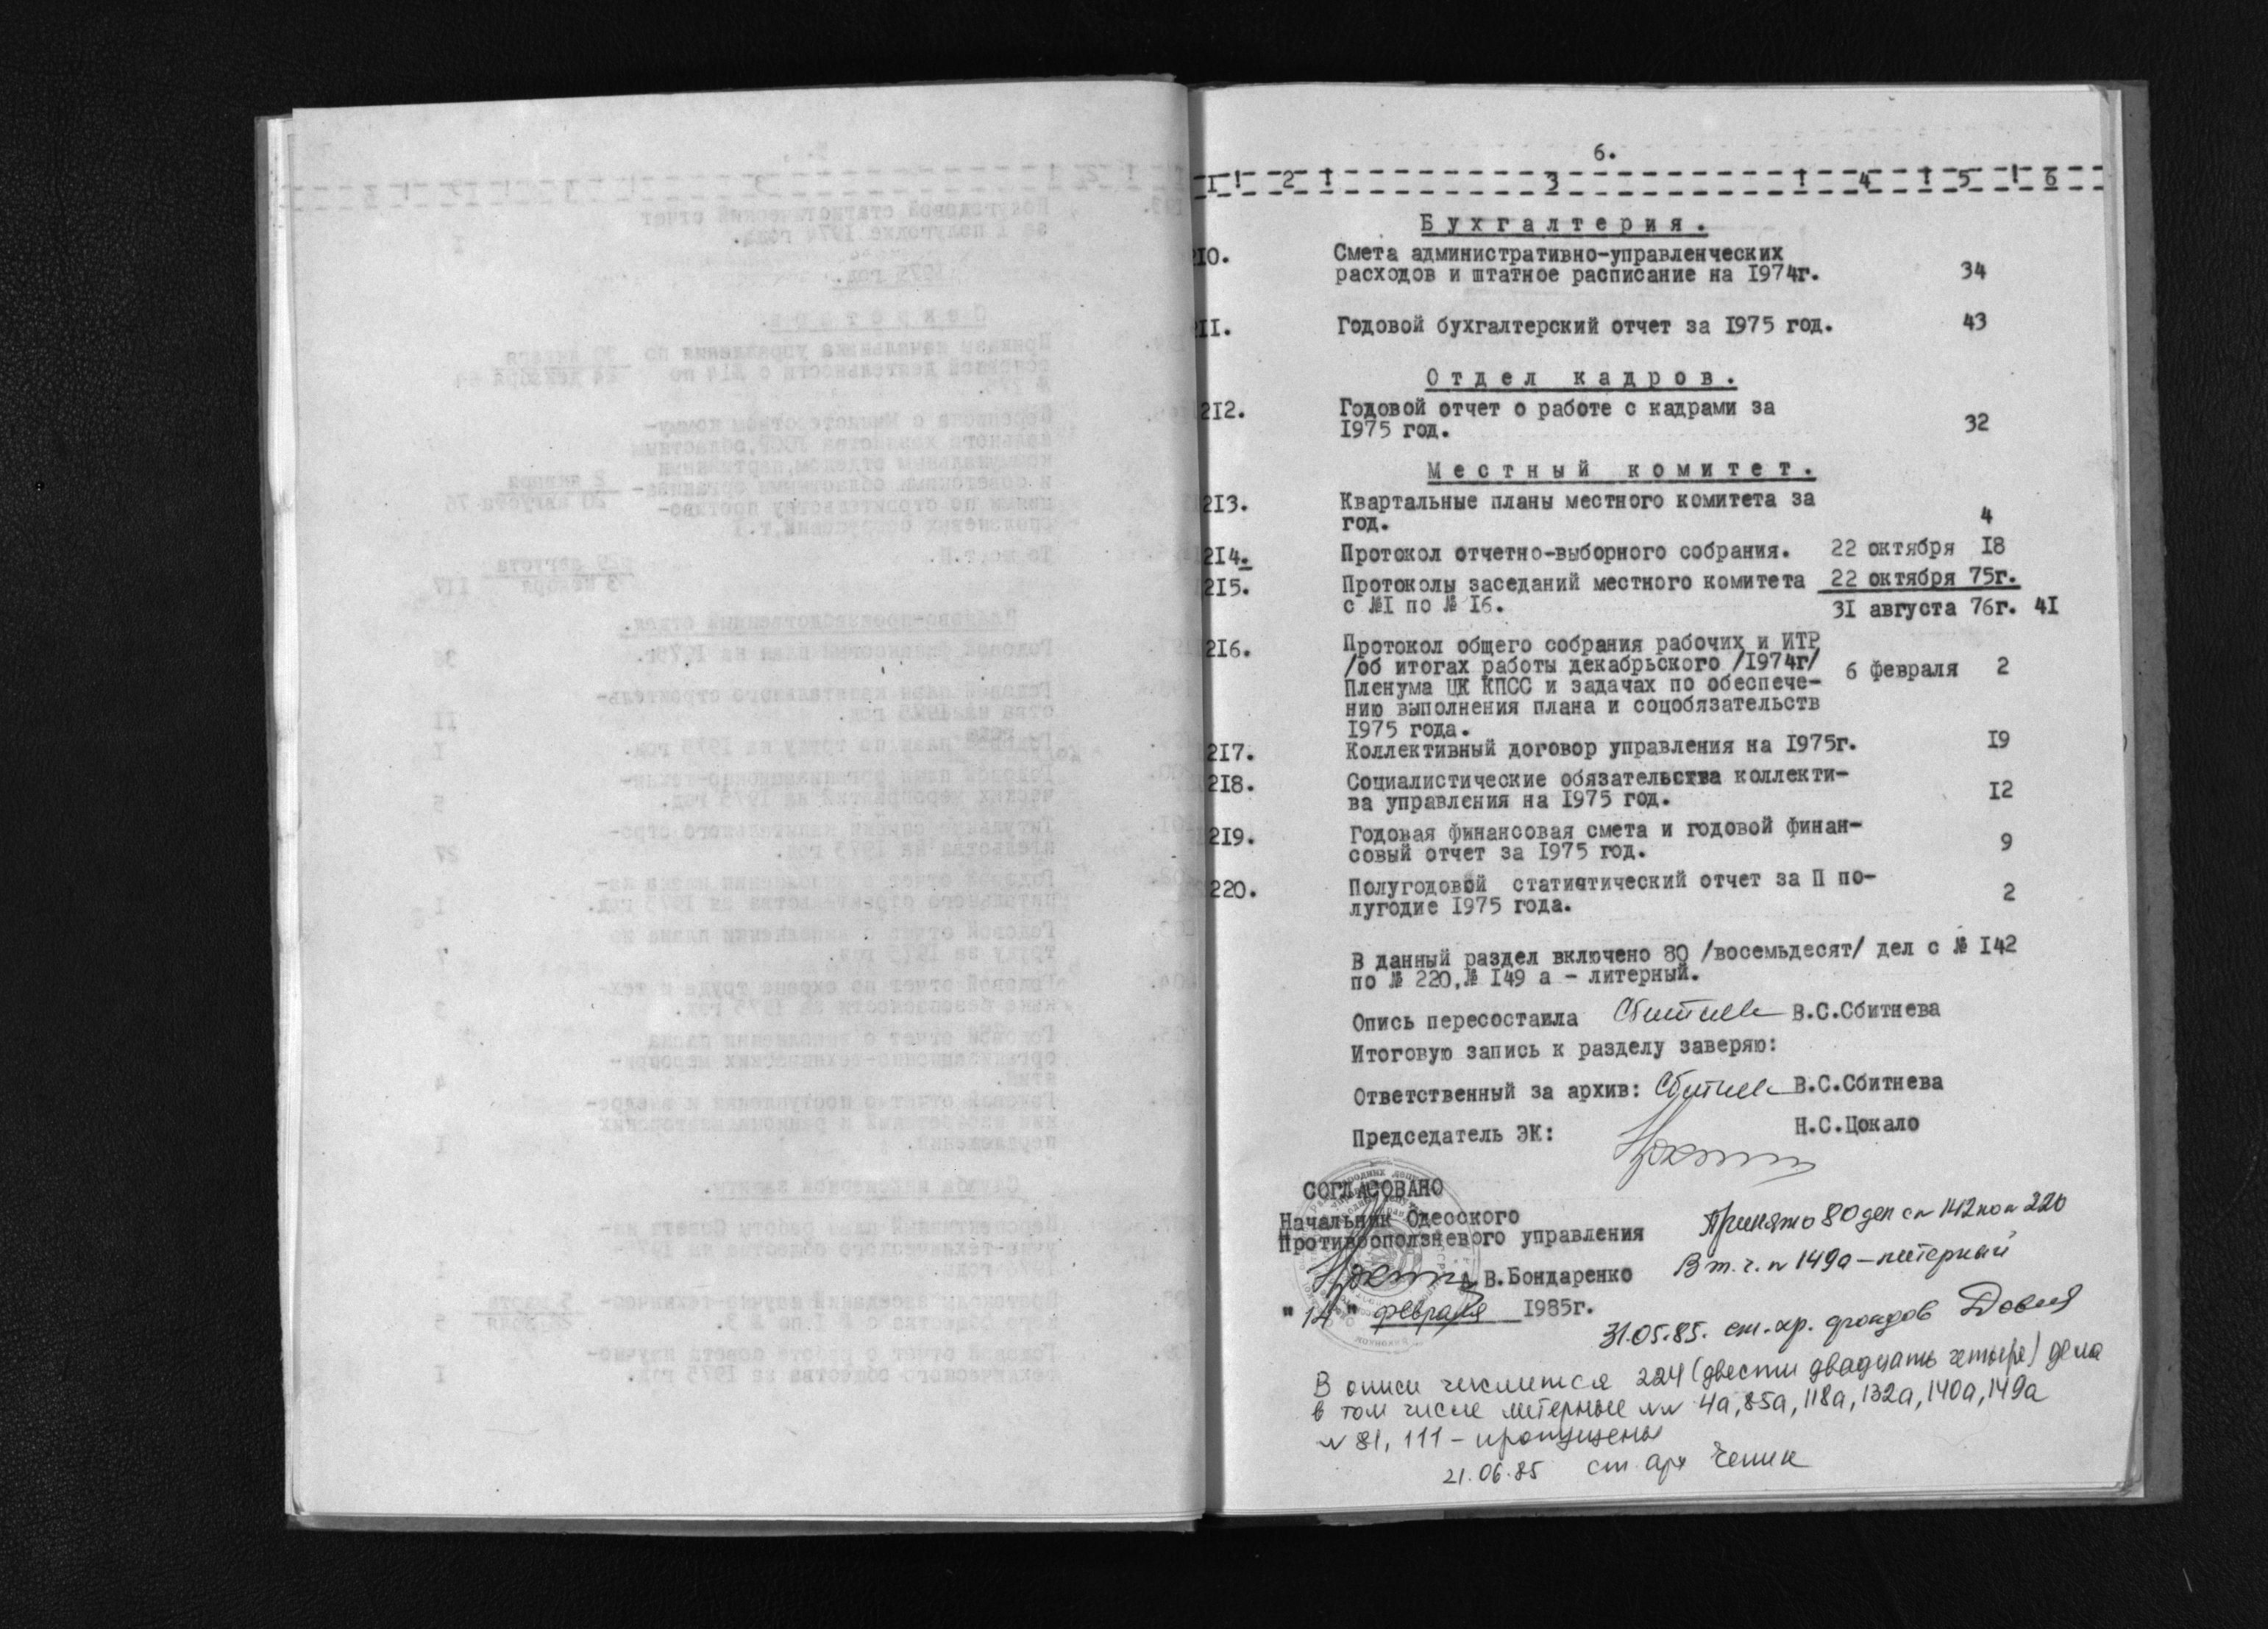 6.
I ! 2 ! 3 ! 4 ! 5 ! 6
Бухгалтерия.
210. Смета административно-управленческих
расходов и штатное расписание на 1974г. 34
211. Годовой бухгалтерский отчет за 1975 год. 43
Отдел кадров.
212. Годовой отчет о работе с кадрами за
1975 год. 32
Местный комитет.
213. Квартальные планы местного комитета за
год. 4
214. Протокол отчетно-выборного собрания. 22 октября 18
215. Протоколы заседаний местного комитета 22 октября 75г.
с №1 по № 16. 31 августа 76г. 41
216. Протокол общего собрания рабочих и ИТР
/об итогах работы декабрьского /1974г/ 6 февраля 2
Пленума ЦК КПСС и задачах по обеспече-
нию выполнения плана и соцобязательств
1975 года.
217. Коллективный договор управления на 1975г. 19
218. Социалистические обязательства коллекти-
ва управления на 1975 год. 12
219. Годовая финансовая смета и годовой финан-
совый отчет за 1975 год. 9
220. Полугодовой статистический отчет за П по-
лугодие 1975 года. 2
В данный раздел включено 80 /восемьдесят/ дел с № 142
по № 220,№ 149 а - литерный.
Опись пересостаила В.С.Сбитнева
Итоговую запись к разделу заверяю:
Ответственный за архив: В.С.Сбитнева
Председатель ЭК: Н.С.Цокало
СОГЛАСОВАНО
Начальник Одесского
Противооползневого управления
В.Бондаренко
"14" февраля 1985г.
Принято 80 дел с № 142 по № 220
В т.ч. № 149а - литерный
31.05.85. ст.хр. фондов
В описи числится 224 (двести двадцать четыре) дела
в том числе литерные №№ 4а, 85а, 118а, 132а, 140а, 149а
№ 81, 111 - пропущены
21.06.85 ст арх